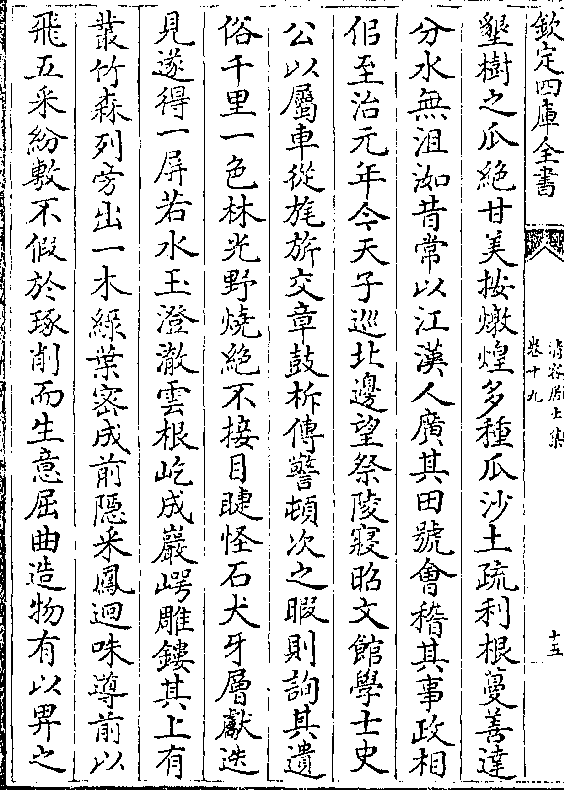 欽定四庫全書
清容居士集
卷十九
十五
墾樹之瓜絶甘美按燉煌多種瓜沙土疏利根蔓善達
分水無沮洳昔常以江漢人廣其田號會稽其事政相
侣至治元年今天子巡北邊望祭陵寢昭文館學士史
公以屬車從旄旂交章鼓柝傳警頓次之暇則詢其遺
俗千里一色林光野燒絶不接目睫怪石犬牙層獻迭
見遂得一屏若水玉澄澈雲根屹成巖崿雕鏤其上有
叢竹森列旁出一木緑葉宻成前隠采鳳迴咮導前以
飛五采紛敷不假於琢削而生意屈曲造物有以畀之